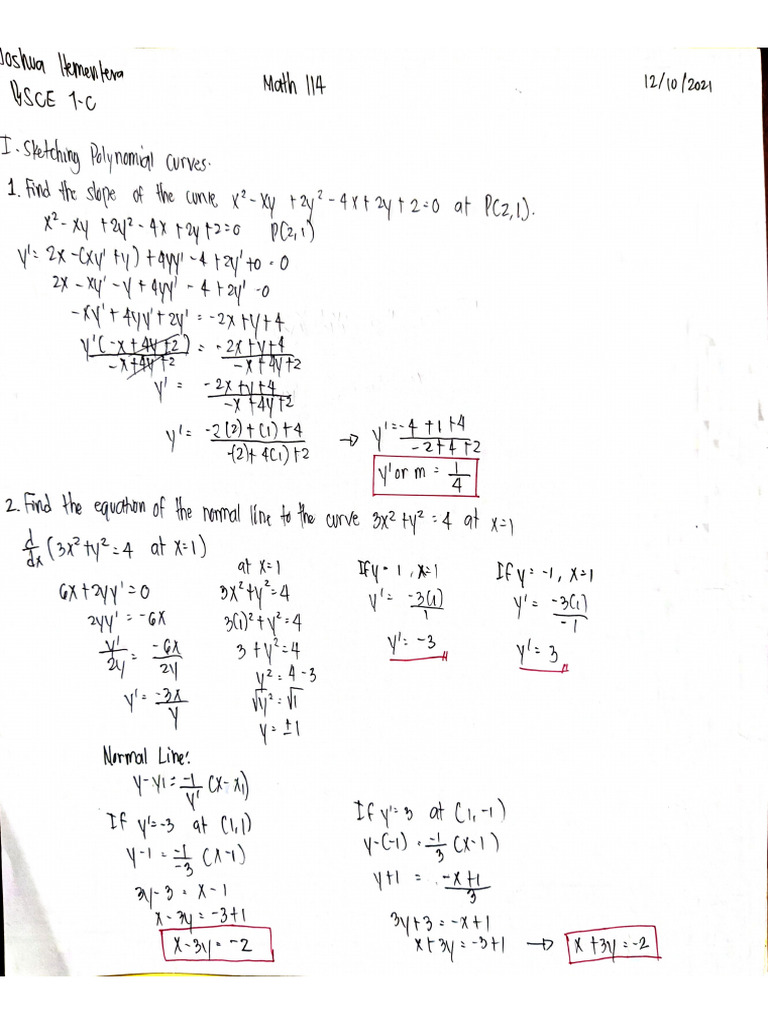 Joshua Hementera
BSCE 1-C
Math 114
12/10/2021
I. Sketching Polynomial curves.
1. Find the slope of the curve x² - xy + 2y² - 4x + 2y + 2 = 0 at P(2,1).
x² - xy + 2y² - 4x + 2y + 2 = 0 P(2,1)
y' = 2x - (xy' + y) + 4yy' - 4 + 2y' + 0 = 0
2x - xy' - y + 4yy' - 4 + 2y' = 0
-xy' + 4yy' + 2y' = -2x + y + 4
y'(-x + 4y + 2) / -x + 4y + 2 = -2x + y + 4 / -x + 4y + 2
y' = -2x + y + 4 / -x + 4y + 2
y' = -2(2) + (1) + 4 / -(2) + 4(1) + 2 → y' = -4 + 1 + 4 / -2 + 4 + 2
y' or m = 1/4
2. Find the equation of the normal line to the curve 3x² + y² = 4 at x = 1
d/dx (3x² + y² = 4 at x = 1)
6x + 2yy' = 0
2yy' = -6x
y'/2y = -6x/2y
y' = -3x/y
at x = 1
3x² + y² = 4
3(1)² + y² = 4
3 + y² = 4
y² = 4 - 3
√y² = √1
y = ±1
If y = 1, x = 1
y' = -3(1)/1
y' = -3
If y = -1, x = 1
y' = -3(1)/-1
y' = 3
Normal Line:
y - y₁ = -1/y' (x - x₁)
If y' = -3 at (1,1)
y - 1 = -1/-3 (x - 1)
3y - 3 = x - 1
x - 3y = -3 + 1
x - 3y = -2
If y' = 3 at (1, -1)
y - (-1) = -1/3 (x - 1)
y + 1 = -x + 1 / 3
3y + 3 = -x + 1
x + 3y = -3 + 1 → x + 3y = -2